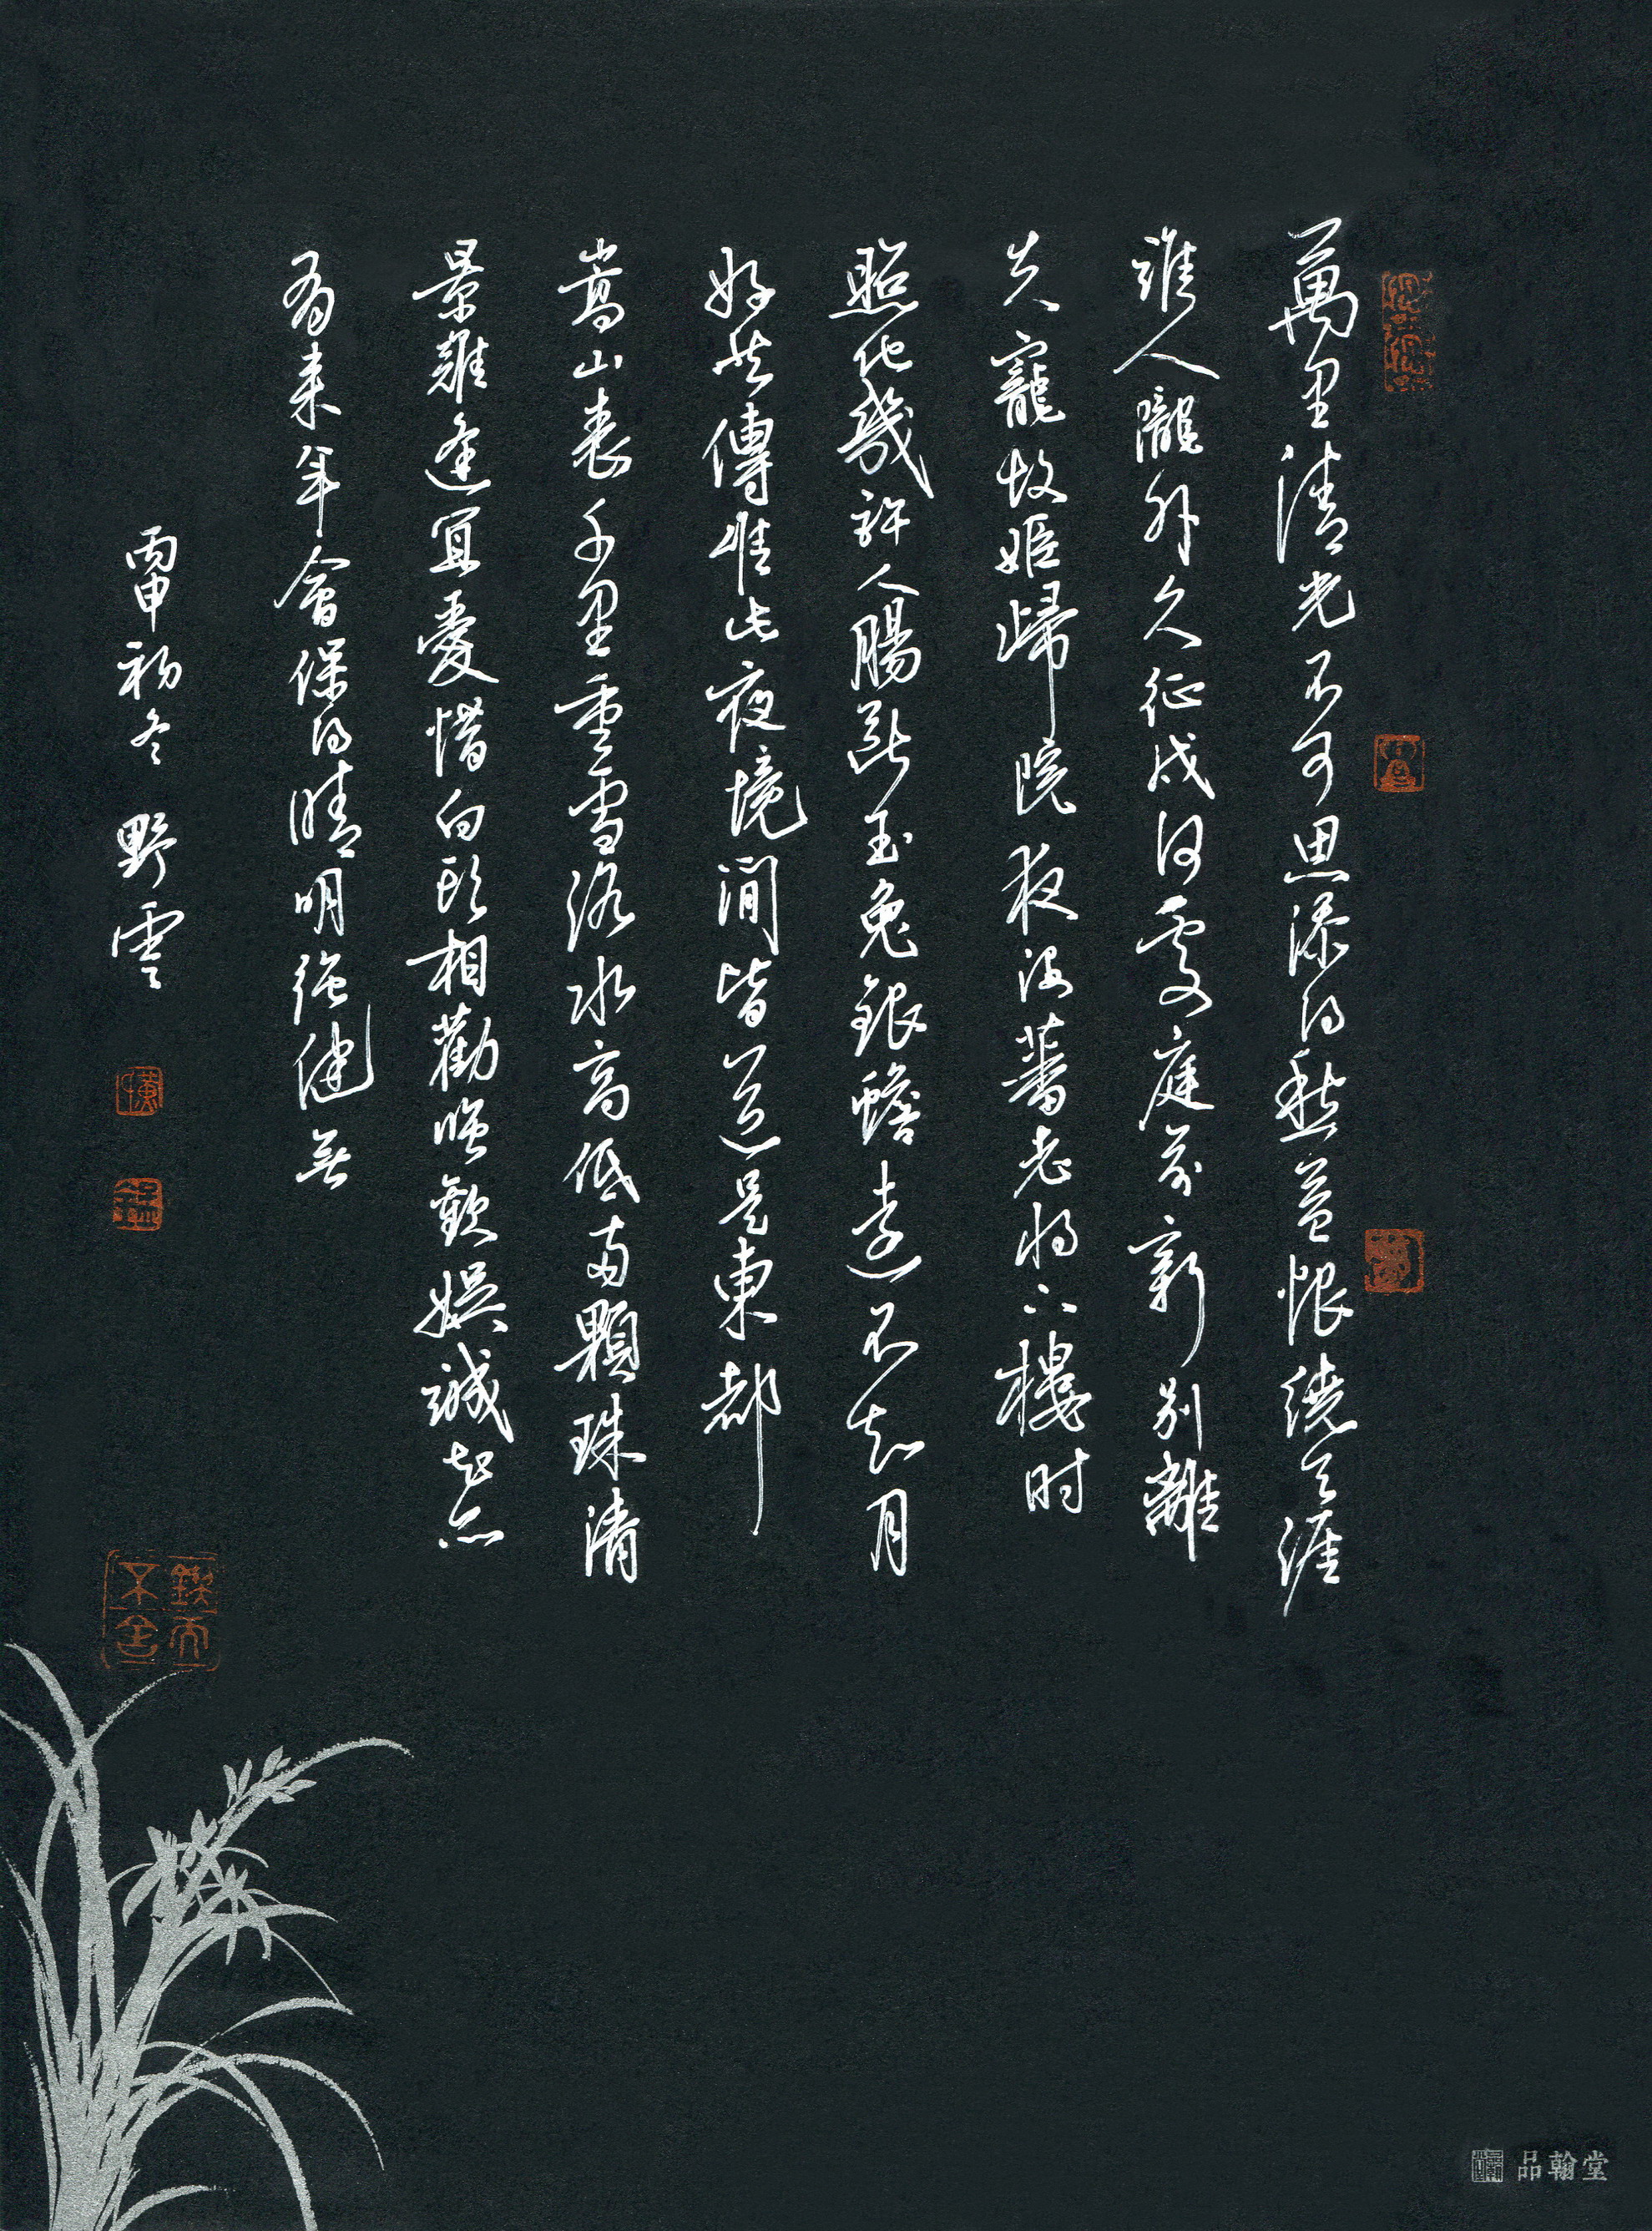 萬里清光不可思添得愁益恨繞天涯
誰人隴外久征戍何處庭前新別離
失寵故姬歸院夜沒蕃老將上樓时
照他幾許人腸斷玉兔銀蟾遠不知月
好共傳惟此夜境閒皆道是東都
嵩山表千里重雪洛水高低兩顆珠清
景難逢宜愛惜白頭相勸強歡娛誠知亦
有来年會保得晴明強健無
丙申初冬 野雲
鍥而不舍
品翰堂